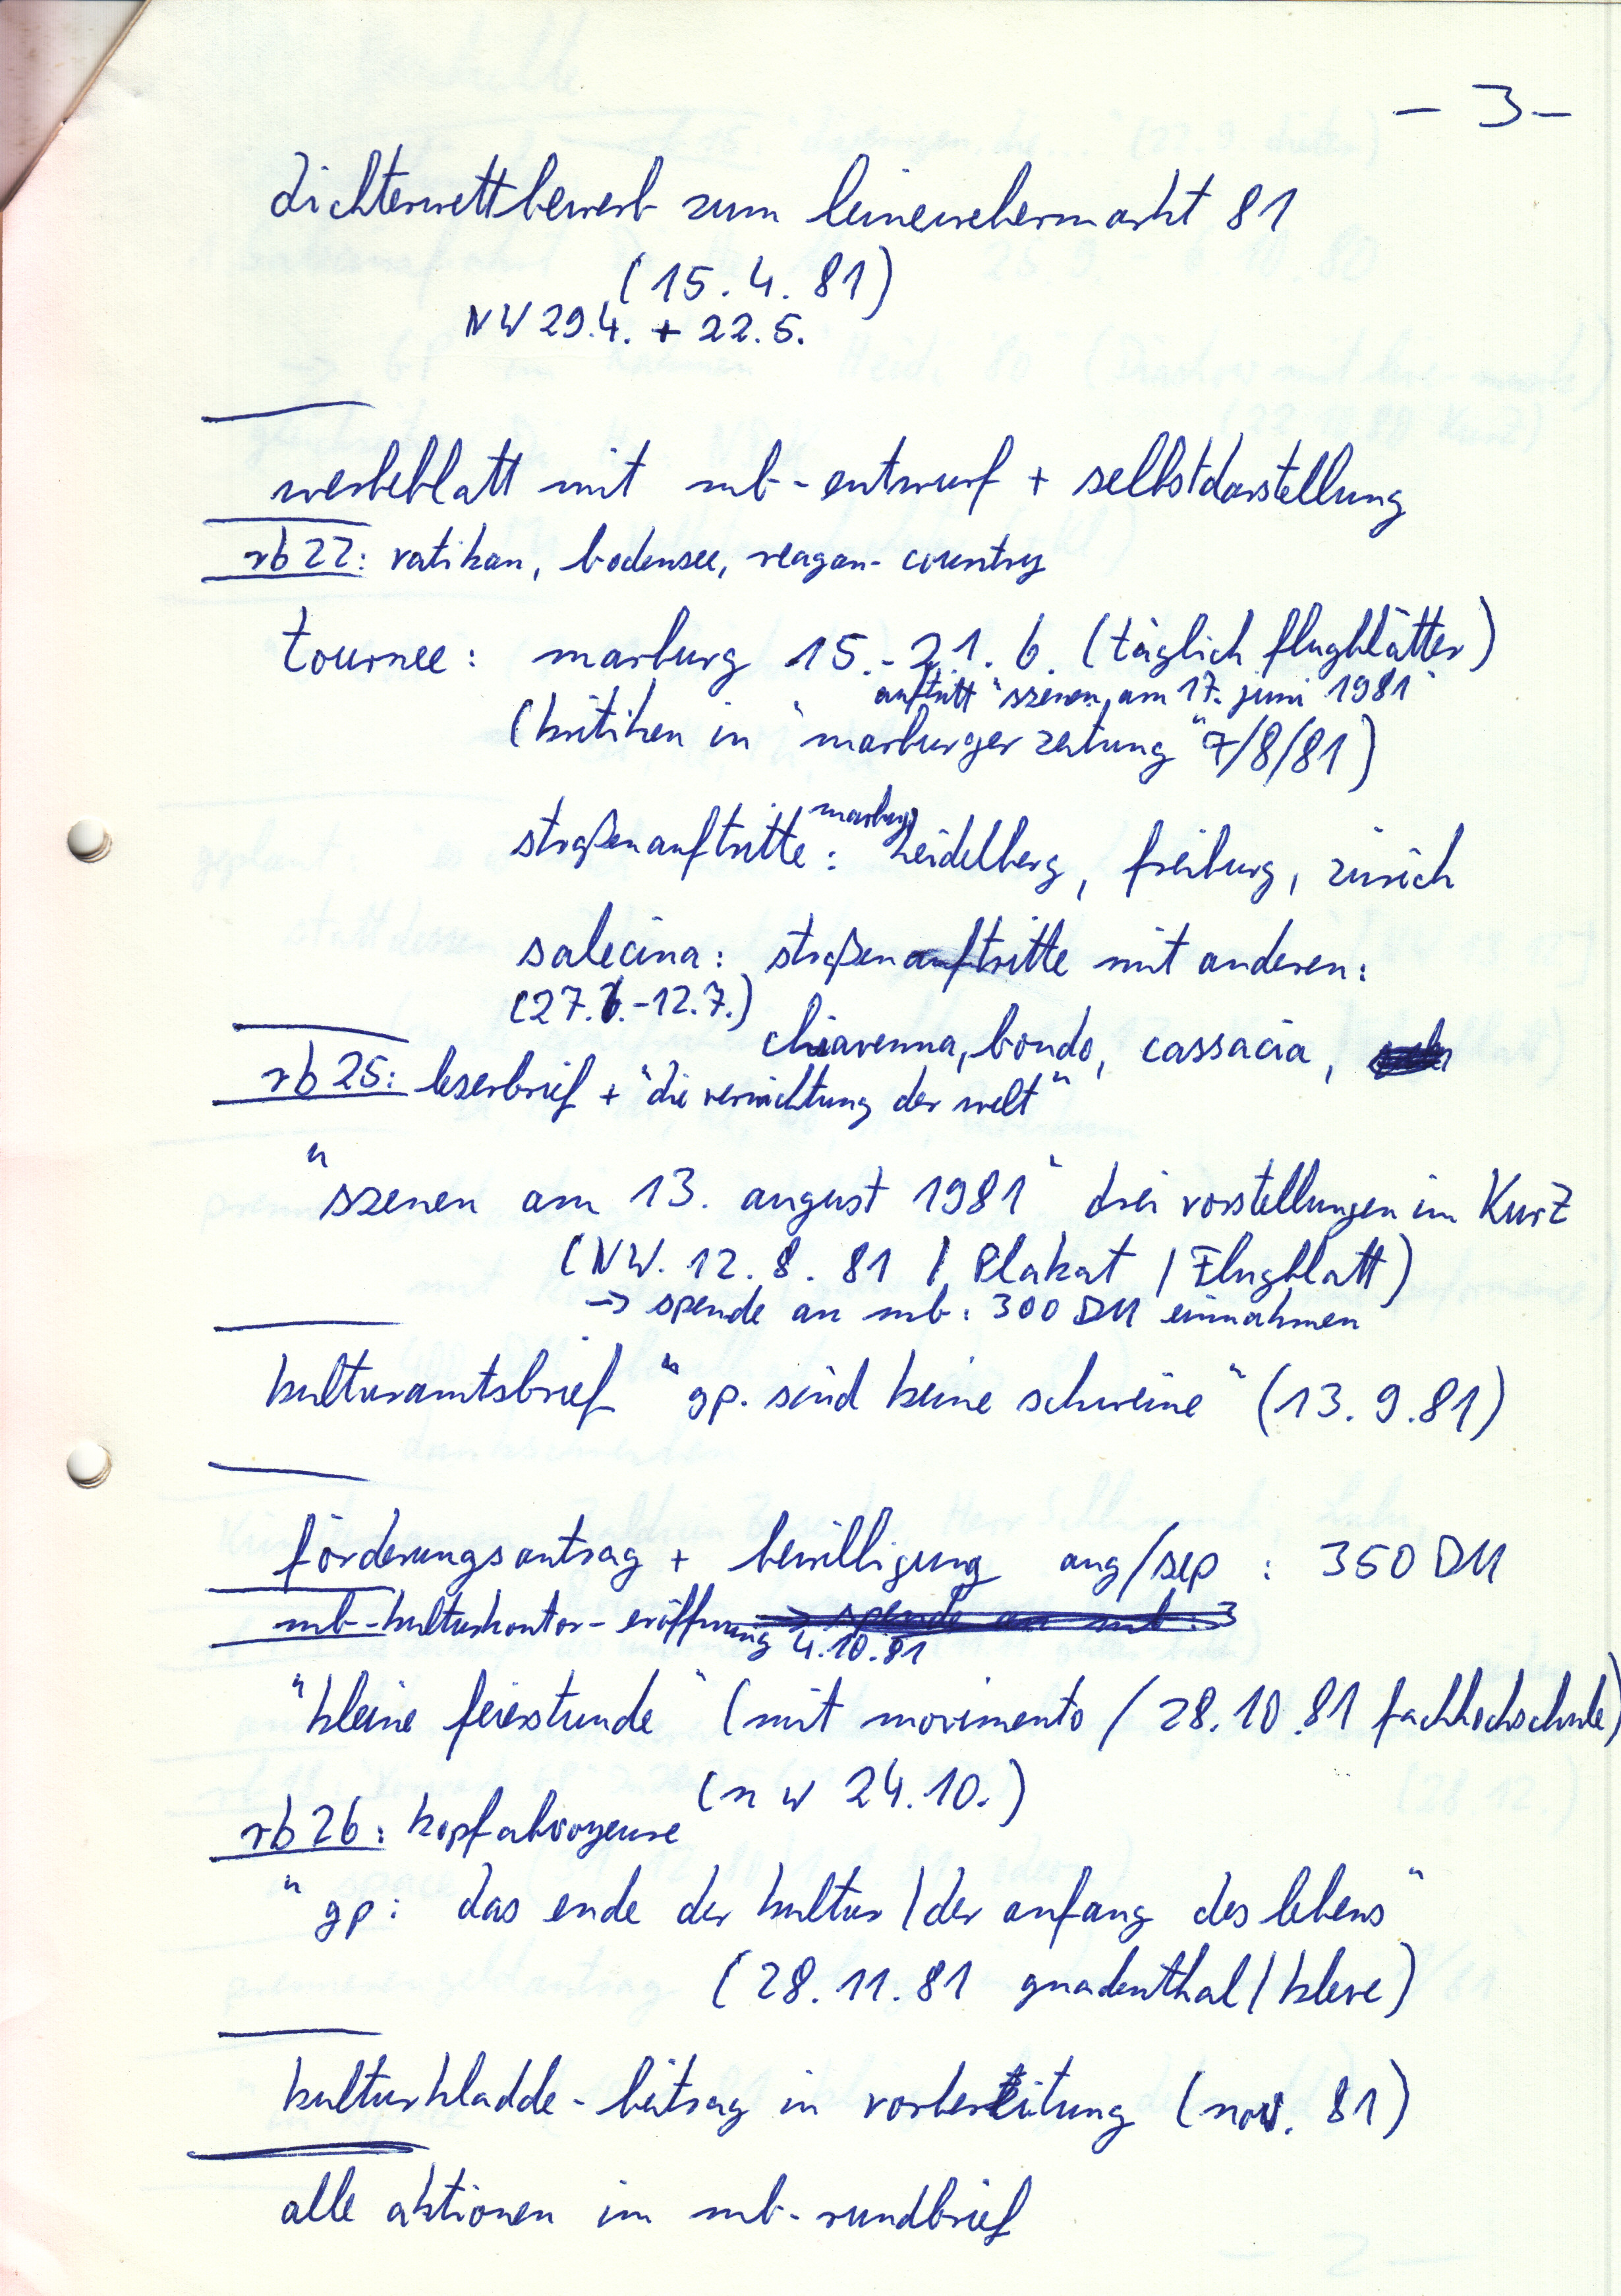 - 3 -
dichterwettbewerb zum leinewebermarkt 81
(15. 4. 81)
NW 29.4. + 22.5.
werbeblatt mit mb-entwurf + selbstdarstellung
rb 22: vatikan, bodensee, reagan-country
tournee: marburg 15.-21. 6. (täglich flugblätter)
auftritt "szenen am 17. juni 1981"
(kritiken in "marburger zeitung" 7/8/81)
marburg
straßenauftritte: heidelberg, freiburg, zürich
salecina: straßenauftritte mit anderen:
(27.6.-12.7.)
chiavenna, bondo, cassacia,
rb 25: leserbrief + "die vernichtung der welt"
"szenen am 13. august 1981" drei vorstellungen im KurZ
(NW. 12. 8. 81 / Plakat / Flugblatt)
→ spende an mb: 300 DM einnahmen
kulturamtsbrief "gp. sind keine schweine" (13. 9. 81)
förderungsantrag + bewilligung aug/sep : 350 DM
mb-kulturkontor-eröffnung → spende an mb: 3
4.10.81
"kleine feierstunde" (mit movimento / 28.10.81 fachhochschule)
(nw 24.10.)
rb 26:
"gp: das ende der kultur / der anfang des lebens"
(28. 11. 81 gnadenthal / kleve)
kulturkladde-beitrag in vorbereitung (nov. 81)
alle aktionen im mb-rundbrief